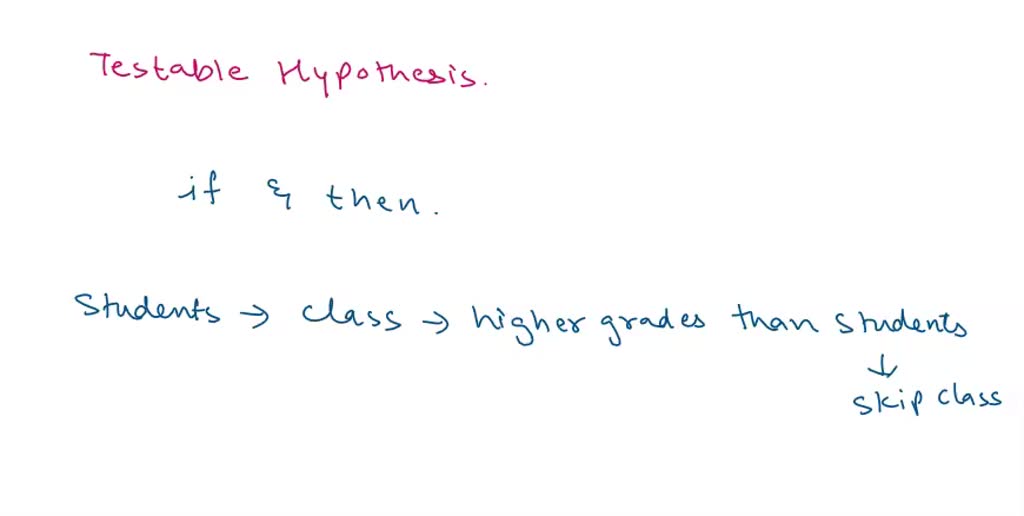 Testable Hypothesis.
if & then.
Students → class → higher grades than students
↓
skip class